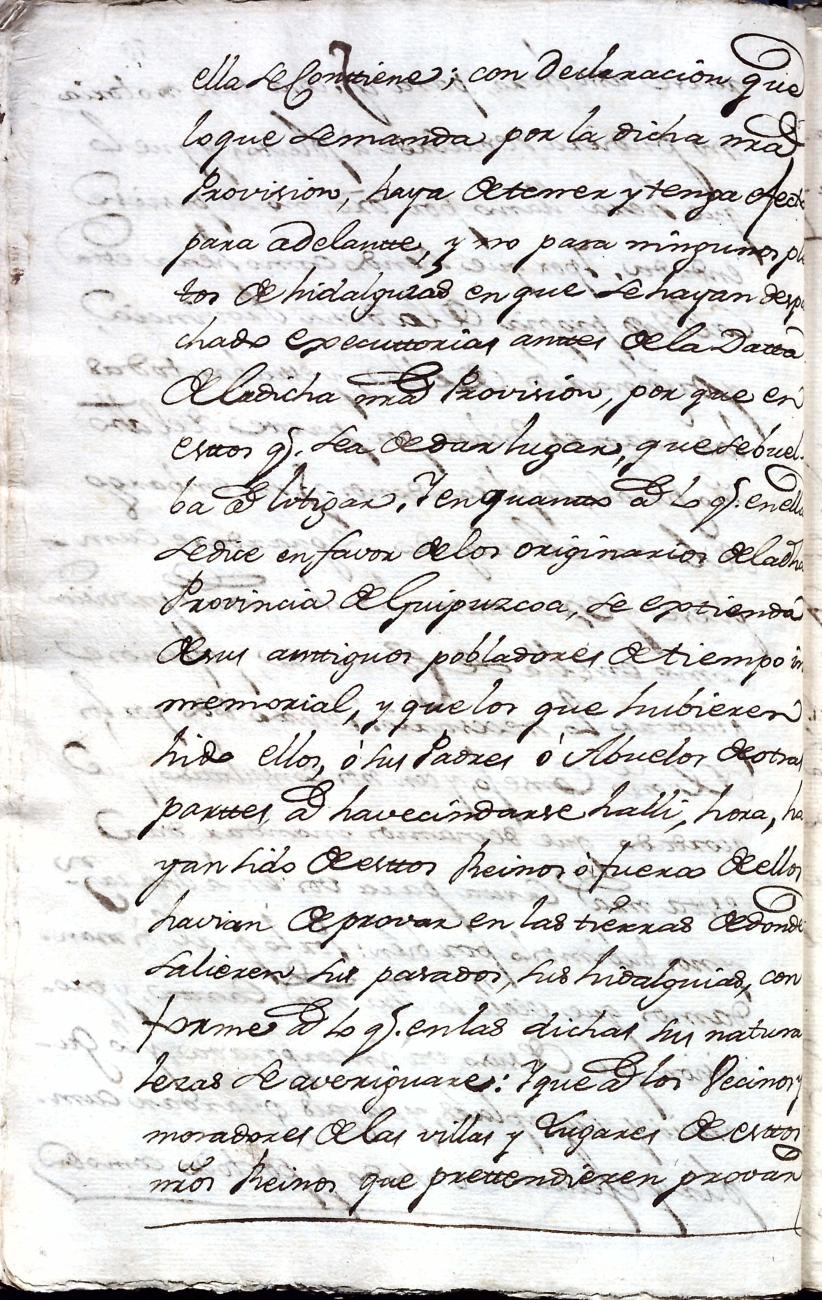 ella se Contiene; con declaracion que
loque semanda por la dicha nrã
Provision, haya de tener y tenga efecto
para adelante, y no para ningunos plei
tos de hidalguias en que se hayan despa
chado executtorias anttes de la Datta
de la dicha nrã Provision, por que en
esttos q̃. sea de dar lugar, que se buel-
ba ad litigar, Y en quanto ad lo q̃. en ella
se dice en favor de los originarios de la dha
Provincia de Guipuzcoa, se extienda
de sus anttiguos pobladores de tiempo in
memorial, y que los que hubieren
hido ellos, ó sus Padres ó Abuelos de otras
parttes ad havecindarse halli, hora, ha
yan sido de esttos Reinos ó fuera de ellos
havian de provar en las tierras de donde
salieren sus pasados, sus hidalguias, con
forme ad lo q̃. en las dichas sus natura
lezas se averiguare: Y que ad los Vecinos y
moradores de las villas y Lugares de esttos
nrõs Reinos que prettendieren provar